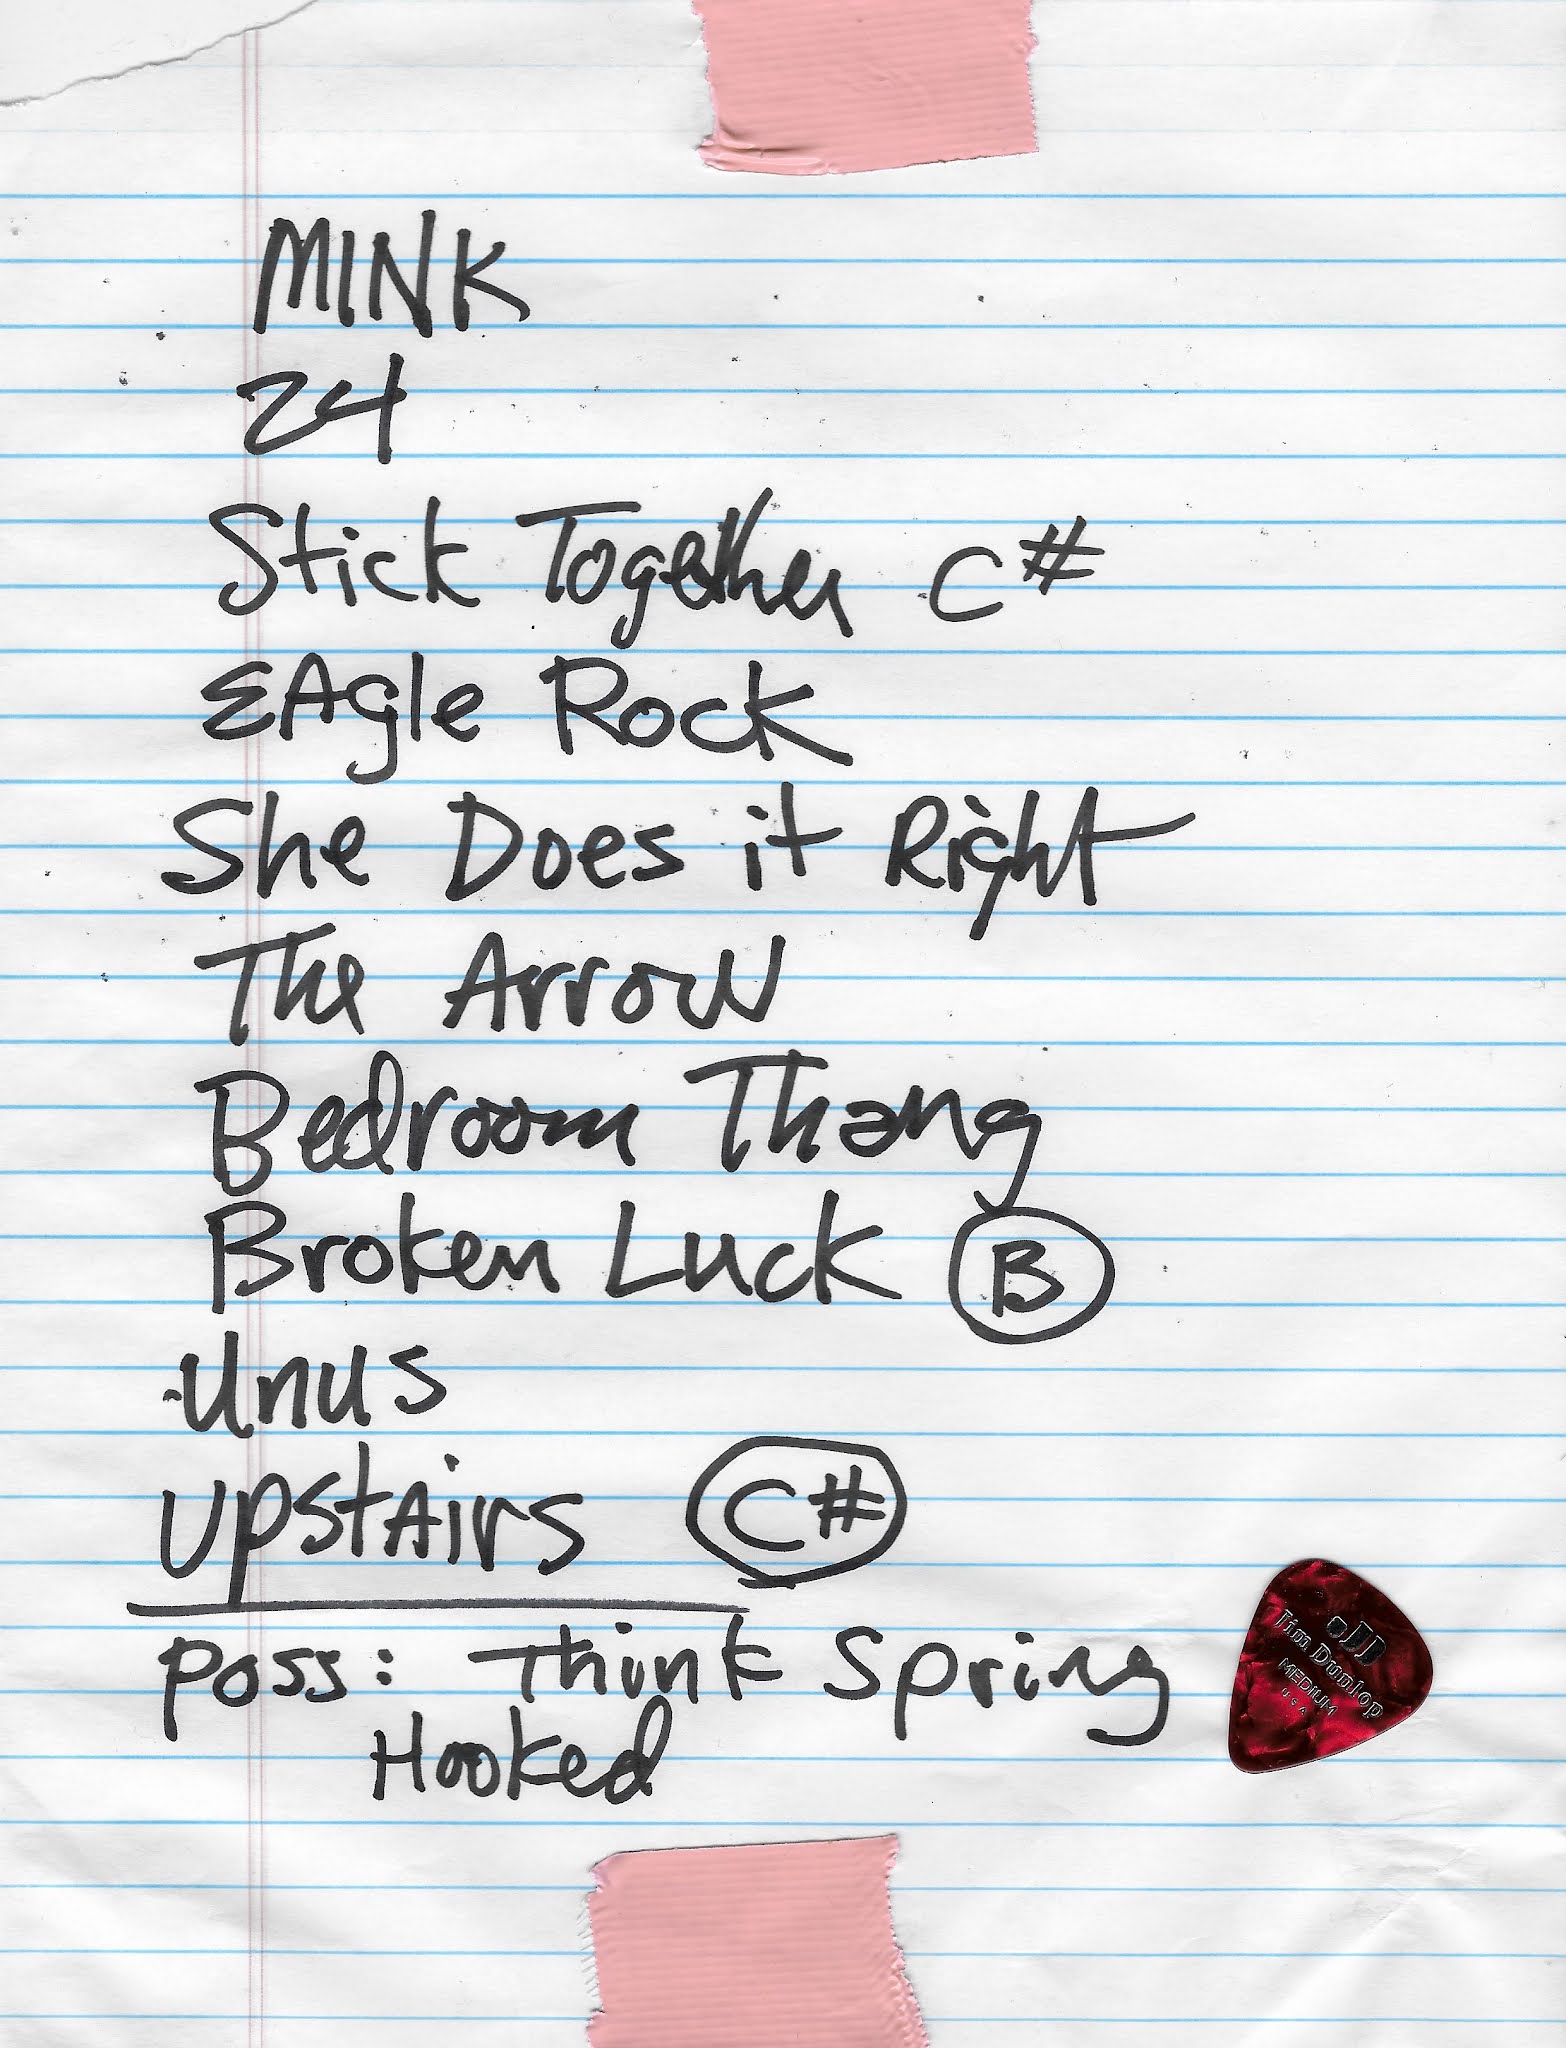 MINK
24
Stick Together C#
EAgle Rock
She Does it Right
The Arrow
Bedroom Thang
Broken Luck B
Unus
UpstAirs C#
Poss: Think Spring
Hooked
Jim Dunlop
MEDIUM
USA